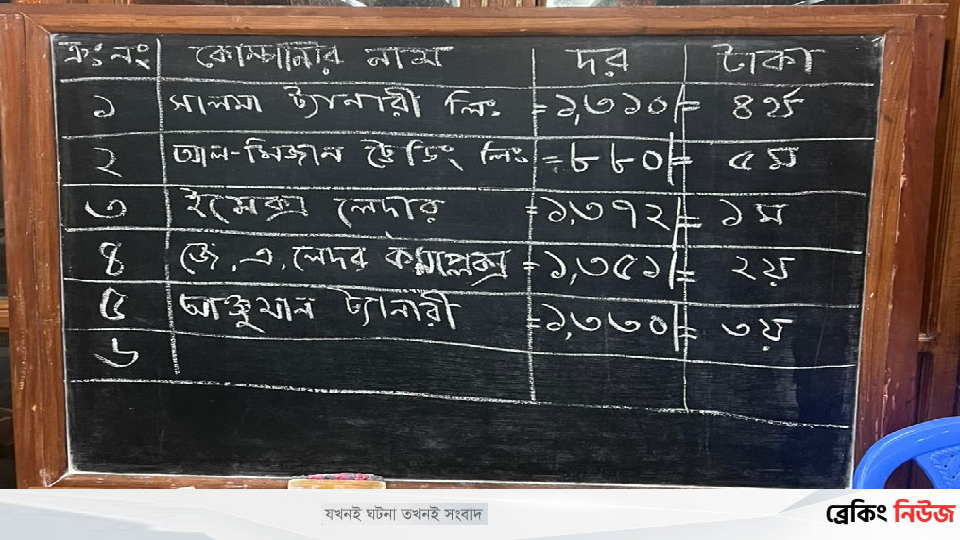 ক্রঃ নং কোম্পানীর নাম দর টাকা
১ সালমা ট্যানারী লিঃ =১,৩১০/= ৪র্থ
২ আল-মিজান ট্রেডিং লিঃ =৮৮০/= ৫ম
৩ ইমেক্স লেদার =১,৩৭২/= ১ম
৪ জে.এ.লেদর কমপ্লেক্স =১,৩৫১/= ২য়
৫ আঞ্জুমান ট্যানারী =১,৩৩০/= ৩য়
৬
যখনই ঘটনা তখনই সংবাদ
ব্রেকিং নিউজ